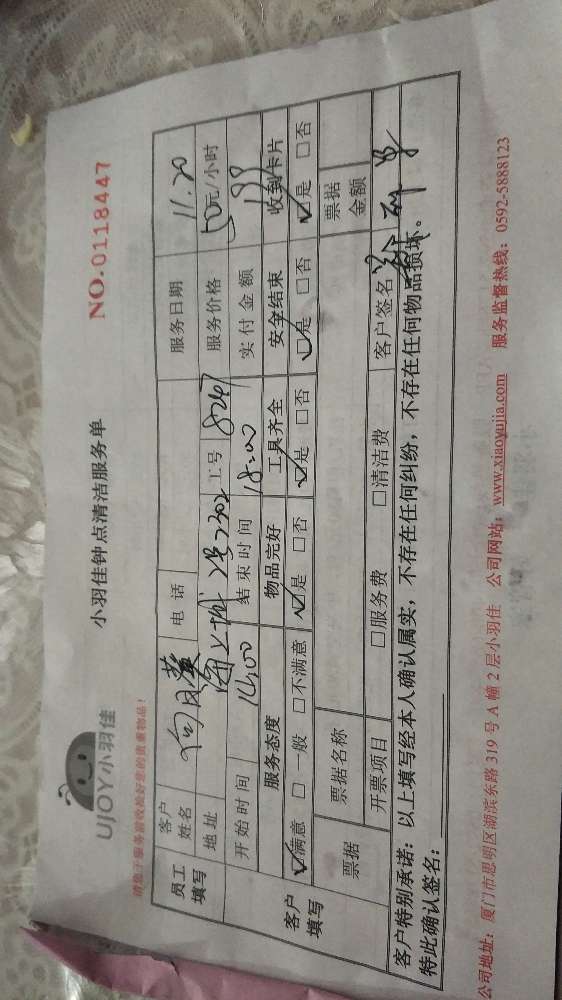 UJOY小羽佳
小羽佳钟点清洁服务单
NO.0118447
请您于服务前收捡好您的贵重物品!
员工填写 客户姓名 电话 服务日期 11.20
地址 2302 工号 8247 服务价格 50元/小时
开始时间 14:00 结束时间 18:00 实付金额 199
客户填写 服务态度 物品完好 工具齐全 安全结束 收到卡片
☑满意 □一般 □不满意 ☑是 □否 ☑是 □否 ☑是 □否 ☑是 □否
票据 票据名称 票据金额
开票项目 □服务费 □清洁费 客户签名
客户特别承诺:以上填写经本人确认属实,不存在任何纠纷,不存在任何物品损坏。
特此确认签名:
公司地址:厦门市思明区湖滨东路 319 号 A 幢 2 层小羽佳 公司网站:www.xiaoyujia.com 服务监督热线:0592-5888123